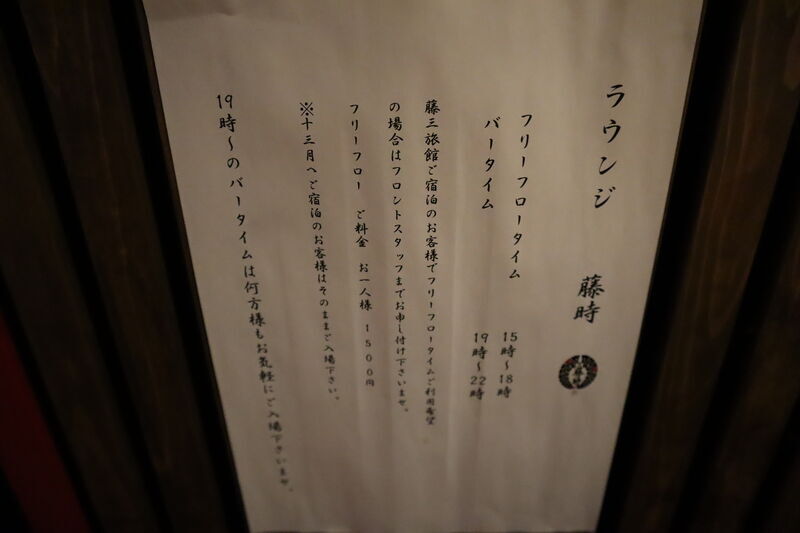 ラウンジ 藤時
フリーフロータイム 15時～18時
バータイム 19時～22時
藤三旅館ご宿泊のお客様でフリーフロータイムご利用希望
の場合はフロントスタッフまでお申し付け下さいませ。
フリーフロー ご料金 お一人様 1500円
※十三月へご宿泊のお客様はそのままご入場下さい。
19時～のバータイムは何方様もお気軽にご入場下さいませ。